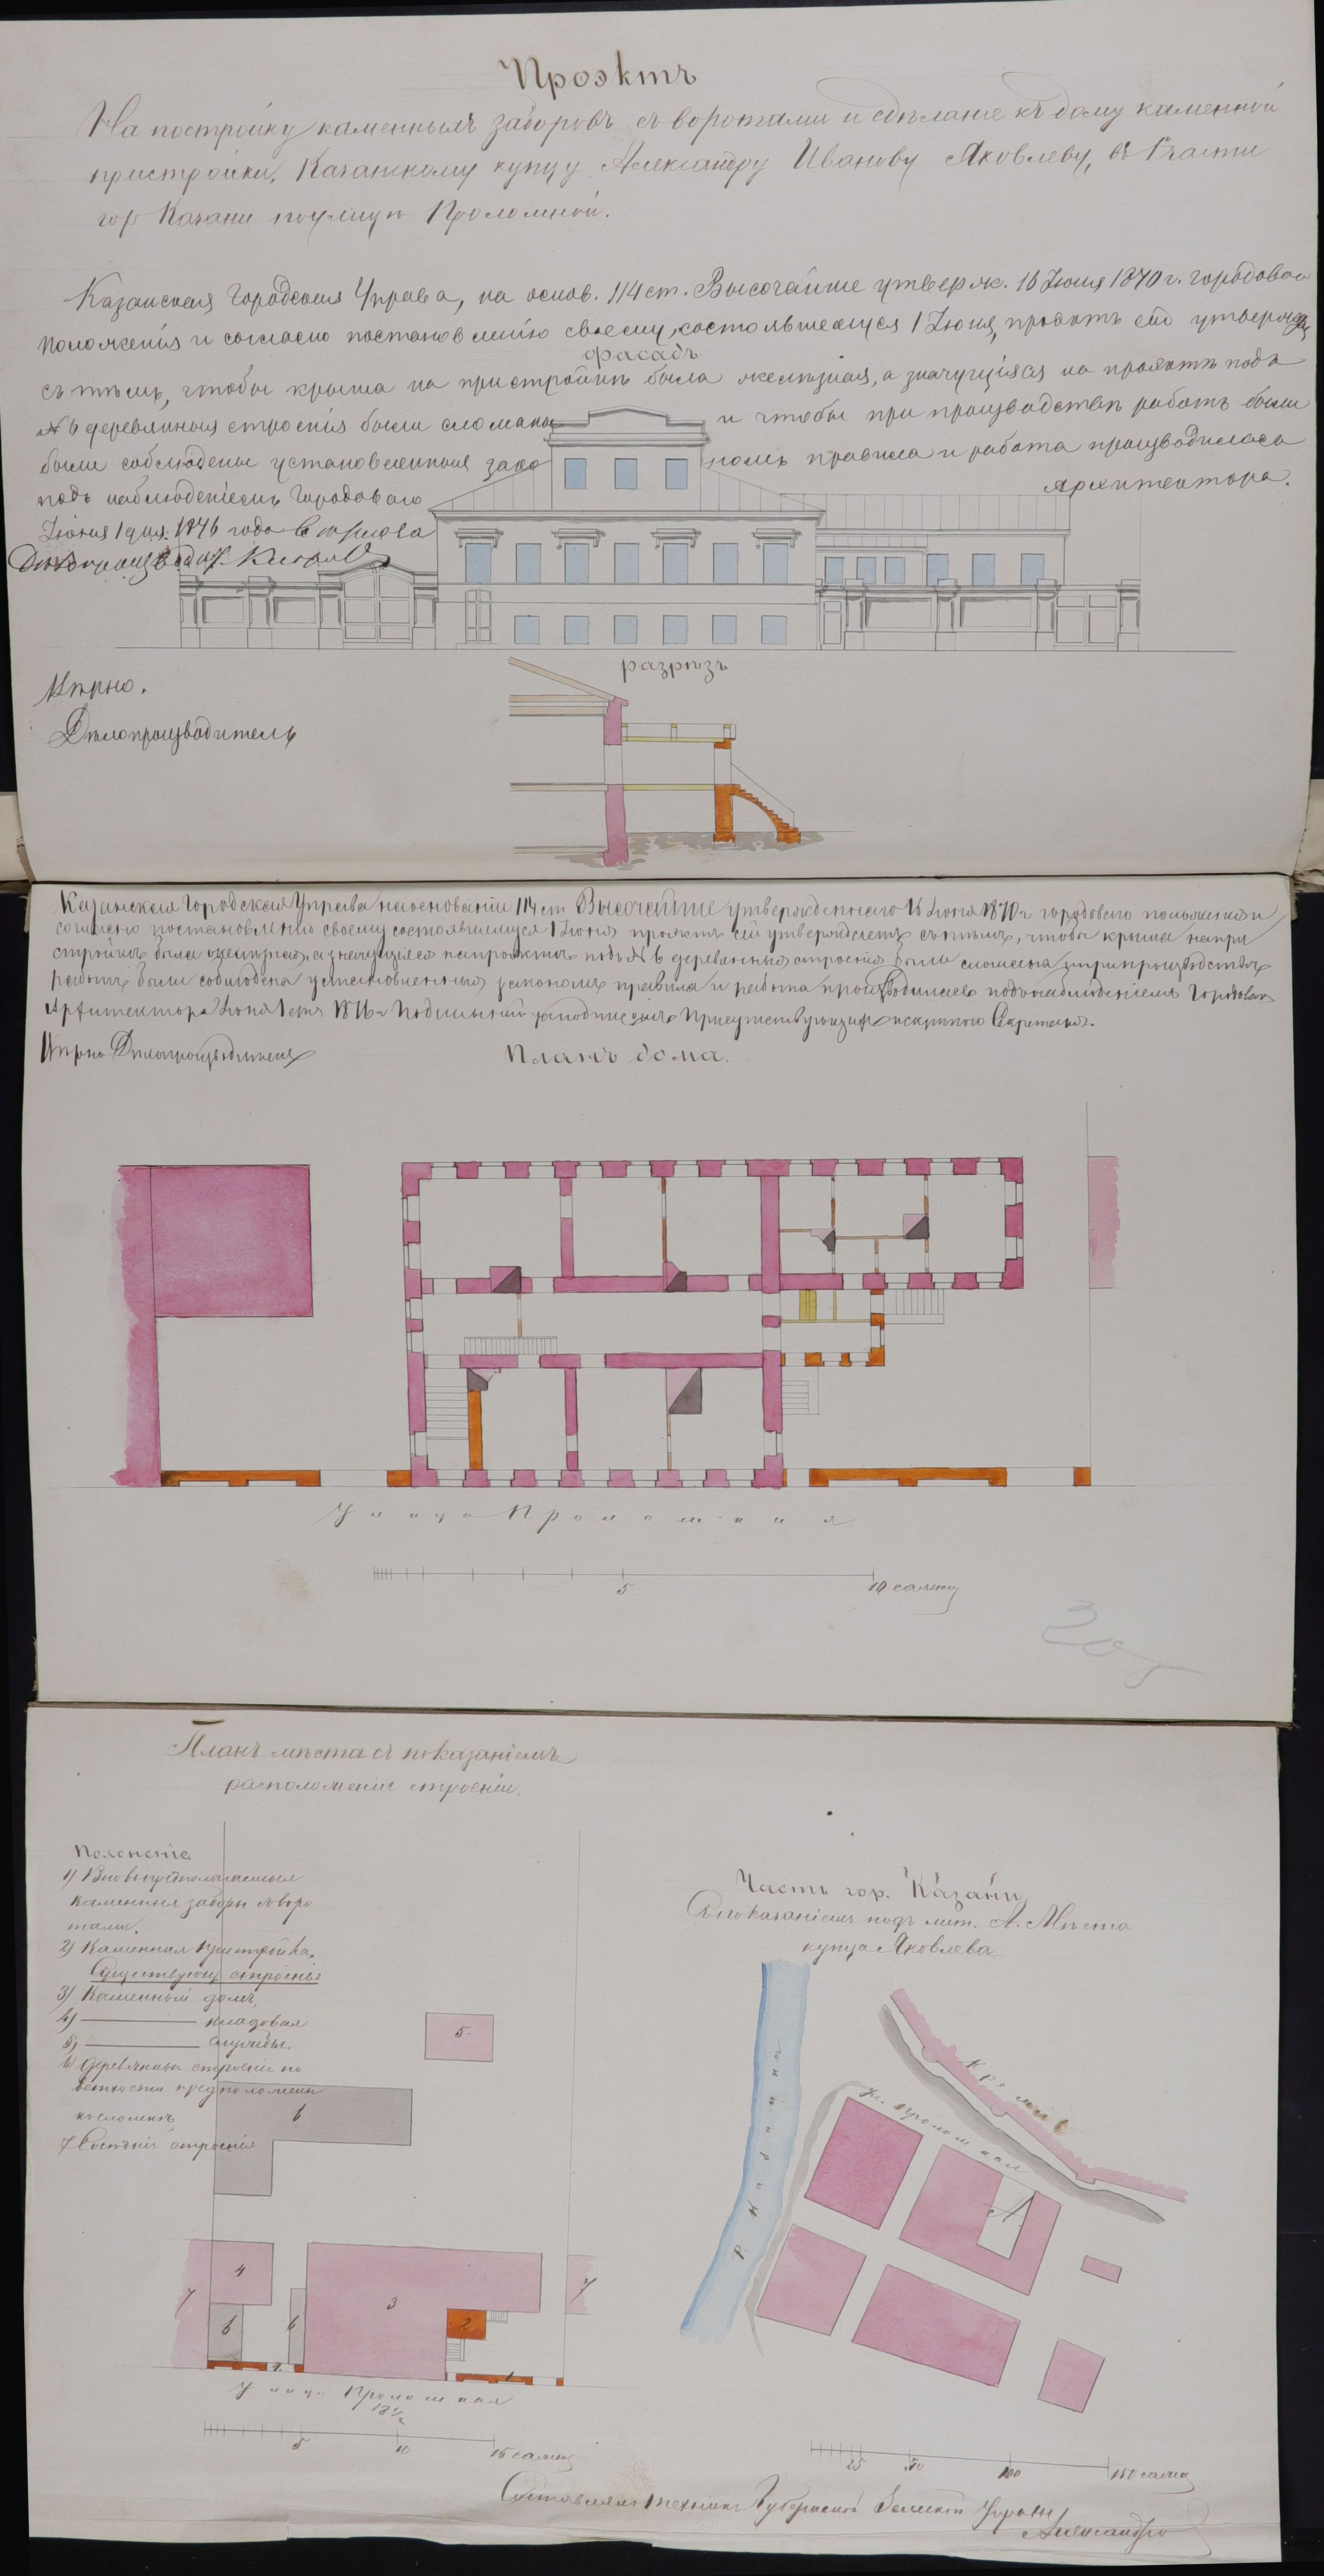 Проэктъ
На постройку каменныхъ заборовъ съ воротами и сдѣлание къ дому каменной
пристройки, Казанскому купцу Александру Иванову Яковлеву, въ 1 части
гор Казани по улицѣ Проломной.
Казанская Городская Управа, на основ. 114 ст. Высочайше утвержд. 16 Іюня 1870 г. городоваго
положенія и согласно постановленію своему, состоявшемуся 1 Іюня, проэктъ сей утверждаетъ
фасадъ
съ тѣмъ, чтобы крыша на пристройкѣ была желѣзная, а значущіяся на проэктѣ подъ
№ 6 деревянныя строенія были сломаны и чтобы при производствѣ работъ были
были соблюдены установленныя закономъ правила и работа производилась
подъ наблюденіемъ Городоваго Архитектора.
Іюня 1 дня 1876 года
разрѣзъ
Вѣрно.
Дѣлопроизводитель
Казанская Городская Управа на основаніи 114 ст Высочайше утвержденнаго 16 Іюня 1870 г городоваго положенія и
согласно постановленію своему состоявшемуся 1 Іюня проэктъ сей утверждаетъ съ тѣмъ, чтобы крыша на при
стройкѣ была желѣзная, а значущіяся на проэктѣ подъ № 6 деревянныя строенія были сломаны и при производствѣ
работъ были соблюдены установленныя закономъ правила и работа производилась подъ наблюденіемъ Городоваго
Архитектора Іюня 1 дня 1876 г Подлинный за подписомъ Присутствующихъ и скрѣпою Секретаря.
Вѣрно Дѣлопроизводитель
Планъ дома.
Улица Проломная
5 10 сажень
Планъ мѣста съ показаніемъ
расположеніе строеніи.
Пояснение
1) Вновь предполагаемыя
каменныя заборы съ воро
тами.
2) Каменная пристройка.
Существующ строенія
3) Каменный домъ,
4) ——— кладовая
5) ——— службы.
6) Деревянныя строенія по
ветхости предположены
къ сломкѣ
7) Сосѣднія строенія
5
6
4
7
3
7
6
6
2
1
1
Улица Проломная
13 1/2
5 10 15 сажень
Часть гор. Казани
Съ показаніемъ подъ лит. А. Мѣста
купца Яковлева.
Ул. Проломная
А
25 50 100 150 сажень
Составлялъ техникъ Губернской Земской Управы